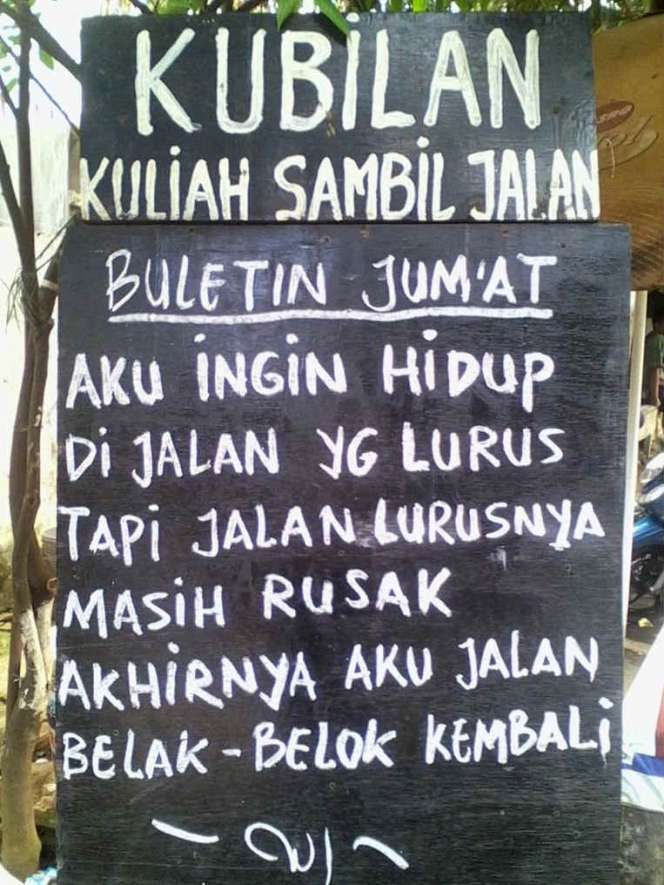 KUBILAN
KULIAH SAMBIL JALAN
BULETIN JUM'AT
AKU INGIN HIDUP
DI JALAN YG LURUS
TAPI JALAN LURUSNYA
MASIH RUSAK
AKHIRNYA AKU JALAN
BELAK-BELOK KEMBALI